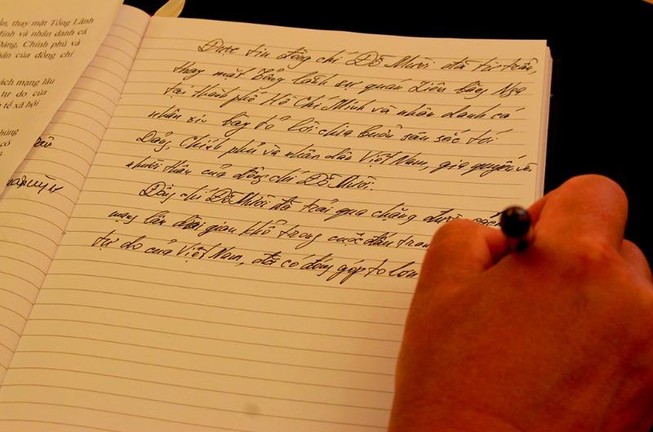 ần, thay mặt Tổng Lãnh
Minh và nhân danh cá
Đảng, Chính phủ và
hân của đồng chí
ách mạng lâu
tự do của
tế xã hội
Được tin đồng chí Đỗ Mười đã từ trần,
thay mặt Tổng lãnh sự quán Liên bang Nga
tại thành phố Hồ Chí Minh và nhân danh cá
nhân xin bày tỏ lời chia buồn sâu sắc tới
Đảng, Chính phủ và nhân dân Việt Nam, gia quyến và
người thân của đồng chí Đỗ Mười.
Đồng chí Đỗ Mười đã trải qua chặng đường cách
mạng lâu dài gian khổ trong cuộc đấu tran
tự do của Việt Nam, đã có đóng góp to lớn